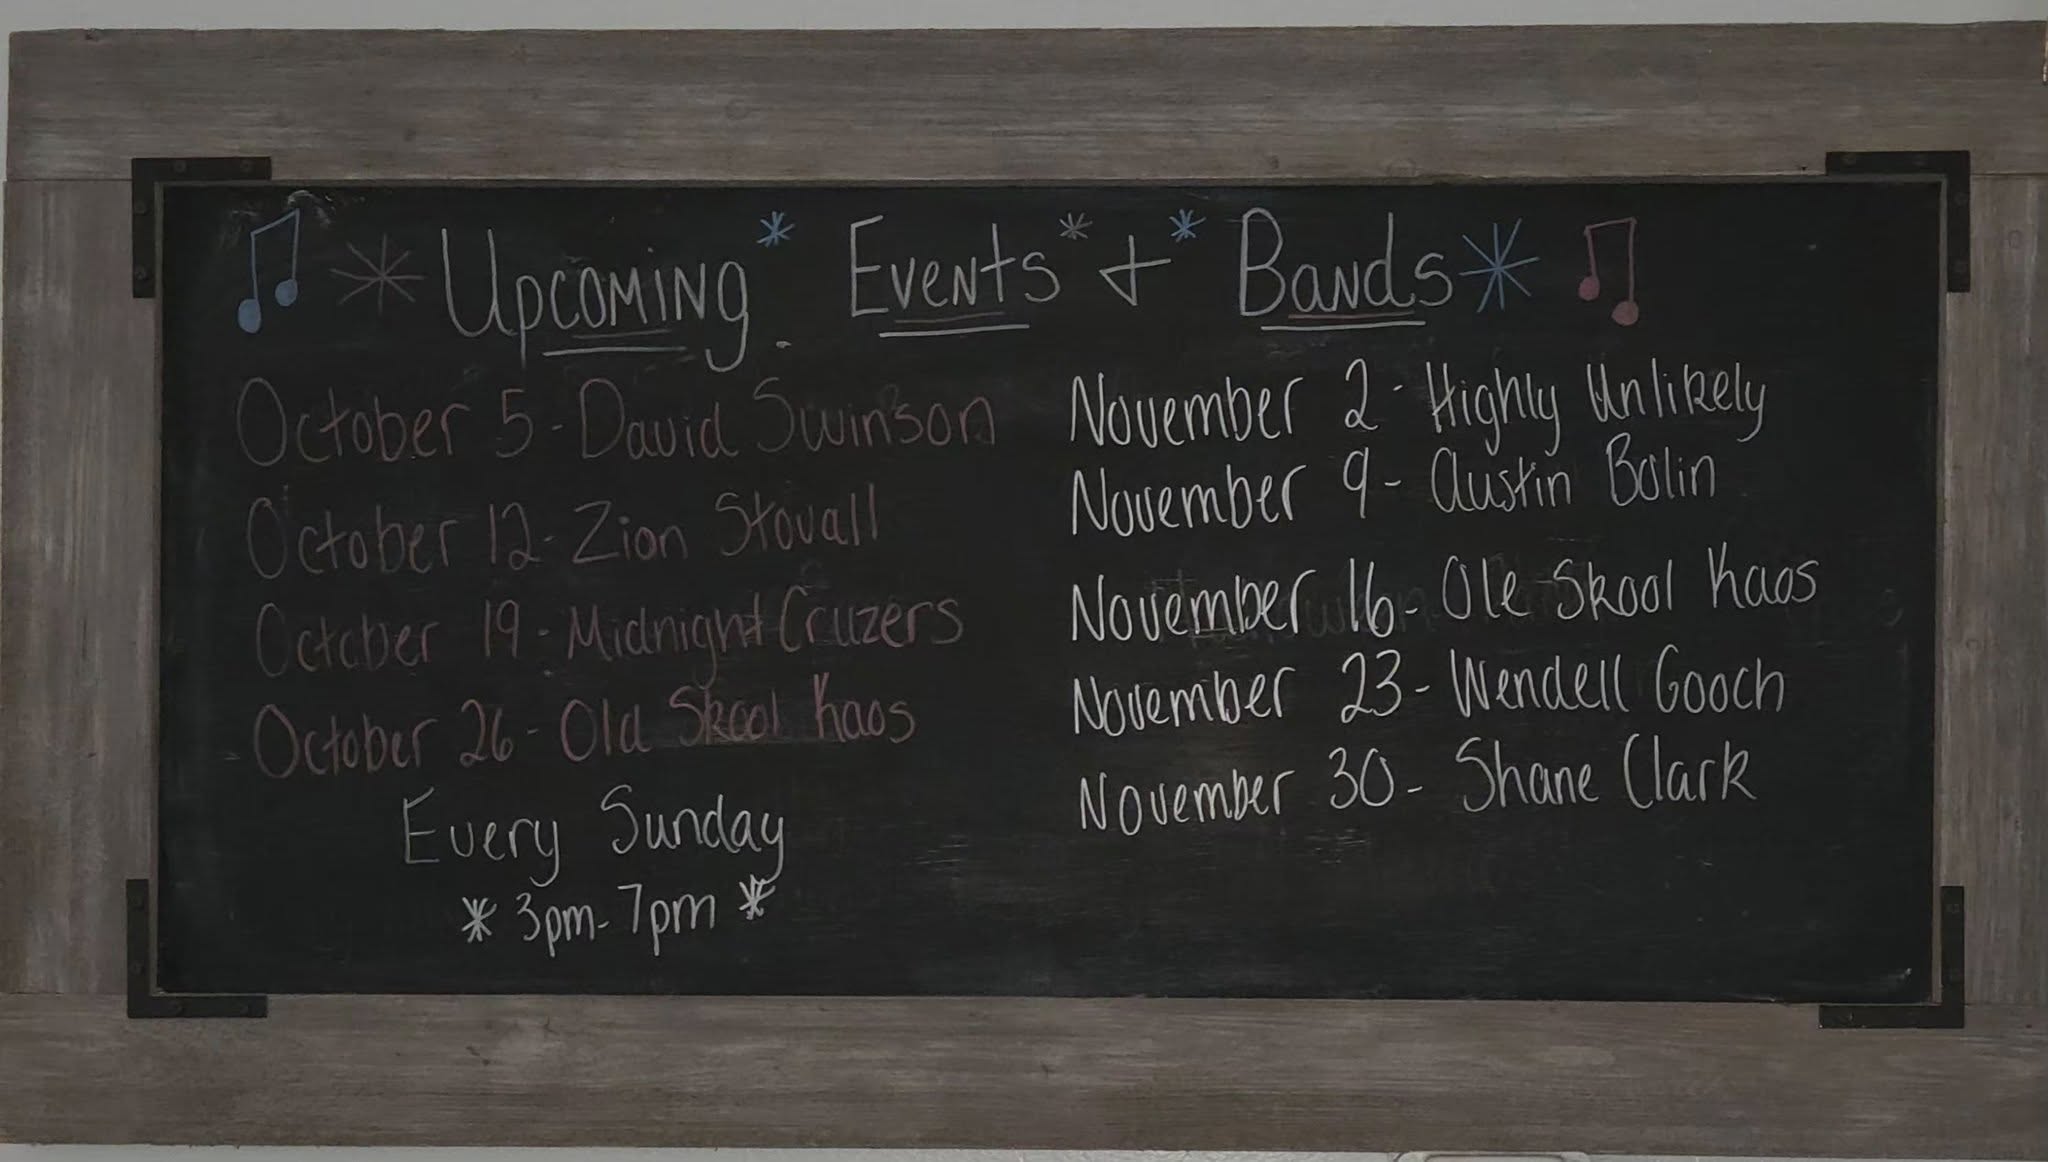 Upcoming Events + Bands
October 5 - David Swinson
October 12 - Zion Stovall
October 19 - Midnight Cruzers
October 26 - Old Skool Kaos
Every Sunday
* 3pm - 7pm *
November 2 - Highly Unlikely
November 9 - Austin Bolin
November 16 - Ole Skool Kaos
November 23 - Wendell Gooch
November 30 - Shane Clark